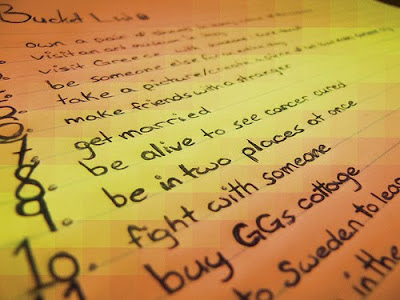 Bucket List
own a pair of
visit an art museum
visit Greece with someone
be someone else for an
take a picture/create a
make friends with a stranger
7. get married
8. be alive to see cancer cured
9. be in two places at once
10. fight with someone
11. buy GGs cottage
to Sweden to lea
in the